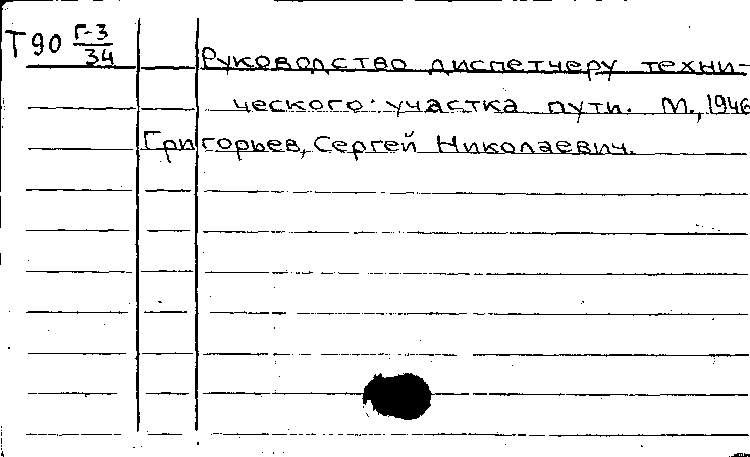 Т90 Г-3/34
Руководство диспетчеру техни-
ческого участка пути. М., 1946
Григорьев, Сергей Николаевич.